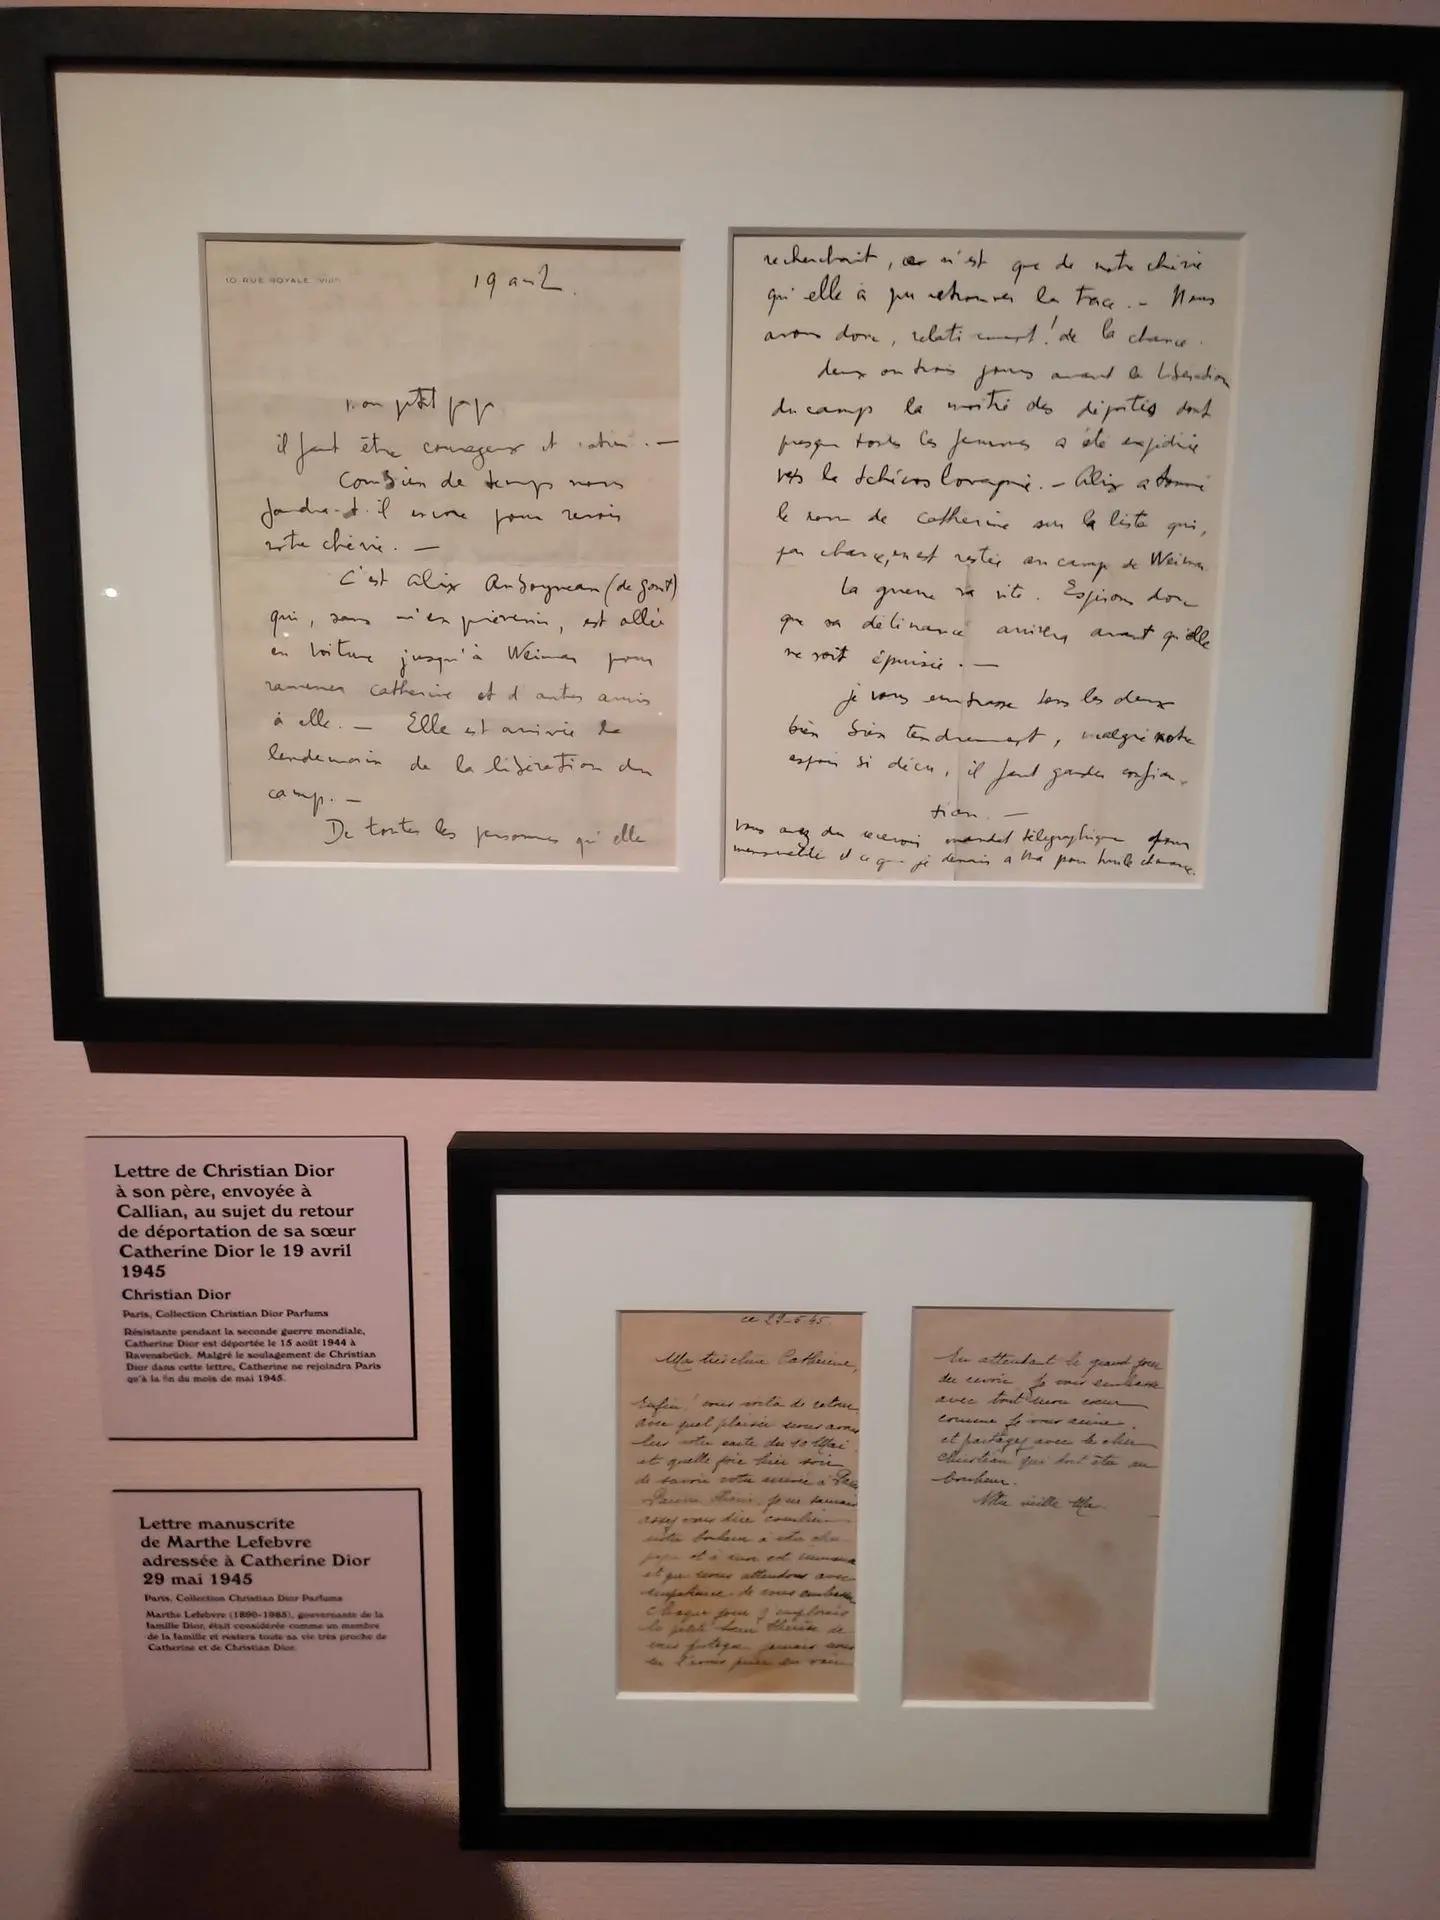 10 RUE ROYALE (VIIIe)
19 avril.
mon petit papa
il faut être courageux et .—
Combien de temps nous
faudra-t-il encore pour revoir
notre chérie. —
C'est Alix Auboyneau (de font)
qui, sans m'en prévenir, est allée
en voiture jusqu'à Weimar pour
ramener Catherine et d'autres amis
à elle. — Elle est arrivée le
lendemain de la libération du
camp. —
De toutes les personnes qu'elle
recherchait, ce n'est que de notre chérie
qu'elle a pu retrouver la trace. — Nous
avons donc, relativement! de la chance.
deux ou trois jours avant la libération
du camp la moitié des déportés dont
presque toutes les femmes a été expédiée
vers la tchécoslovaquie. — Alix a trouvé
le nom de Catherine sur la liste qui,
par chance, en est restée au camp de Weimar
La guerre va vite. Espérons donc
que sa délivrance arrivera avant qu'elle
ne soit épuisée. —
je vous embrasse tous les deux
bien bien tendrement, malgré notre
espoir si déçu, il faut garder
—
Vous avez du recevoir mandat télégraphique pour
mensualité et ce que je devais a Ma pour
Lettre de Christian Dior
à son père, envoyée à
Callian, au sujet du retour
de déportation de sa sœur
Catherine Dior le 19 avril
1945
Christian Dior
Paris, Collection Christian Dior Parfums
Résistante pendant la seconde guerre mondiale,
Catherine Dior est déportée le 15 août 1944 à
Ravensbrück. Malgré le soulagement de Christian
Dior dans cette lettre, Catherine ne rejoindra Paris
qu'à la fin du mois de mai 1945.
ce 29-5-45.
Ma très chère Catherine,
Enfin! vous voilà de retour
avec quel plaisir nous avons
lu votre carte du 10 Mai
et quelle joie hier soir
de savoir votre arrivée à Paris
je ne saurais
assez vous dire combien
notre bonheur à votre cher
papa et à moi est immense
et que nous attendons avec
impatience de vous embrasser
Chaque jour j'implorais
la petite Sœur Thérèse de
vous protéger jamais nous
ne l'avons priée en vain
En attendant le grand jour
du revoir je vous embrasse
avec tout mon cœur
comme je vous aime.
et partagez avec le cher
Christian qui doit être au
bonheur.
Votre vieille Ma.
Lettre manuscrite
de Marthe Lefebvre
adressée à Catherine Dior
29 mai 1945
Paris, Collection Christian Dior Parfums
Marthe Lefebvre (1890-1985), gouvernante de la
famille Dior, était considérée comme un membre
de la famille et restera toute sa vie très proche de
Catherine et de Christian Dior.